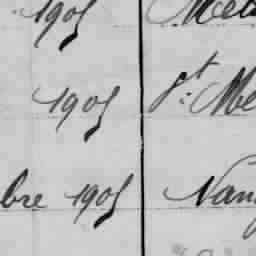 1905
1905 St. Me
bre 1905 Nan